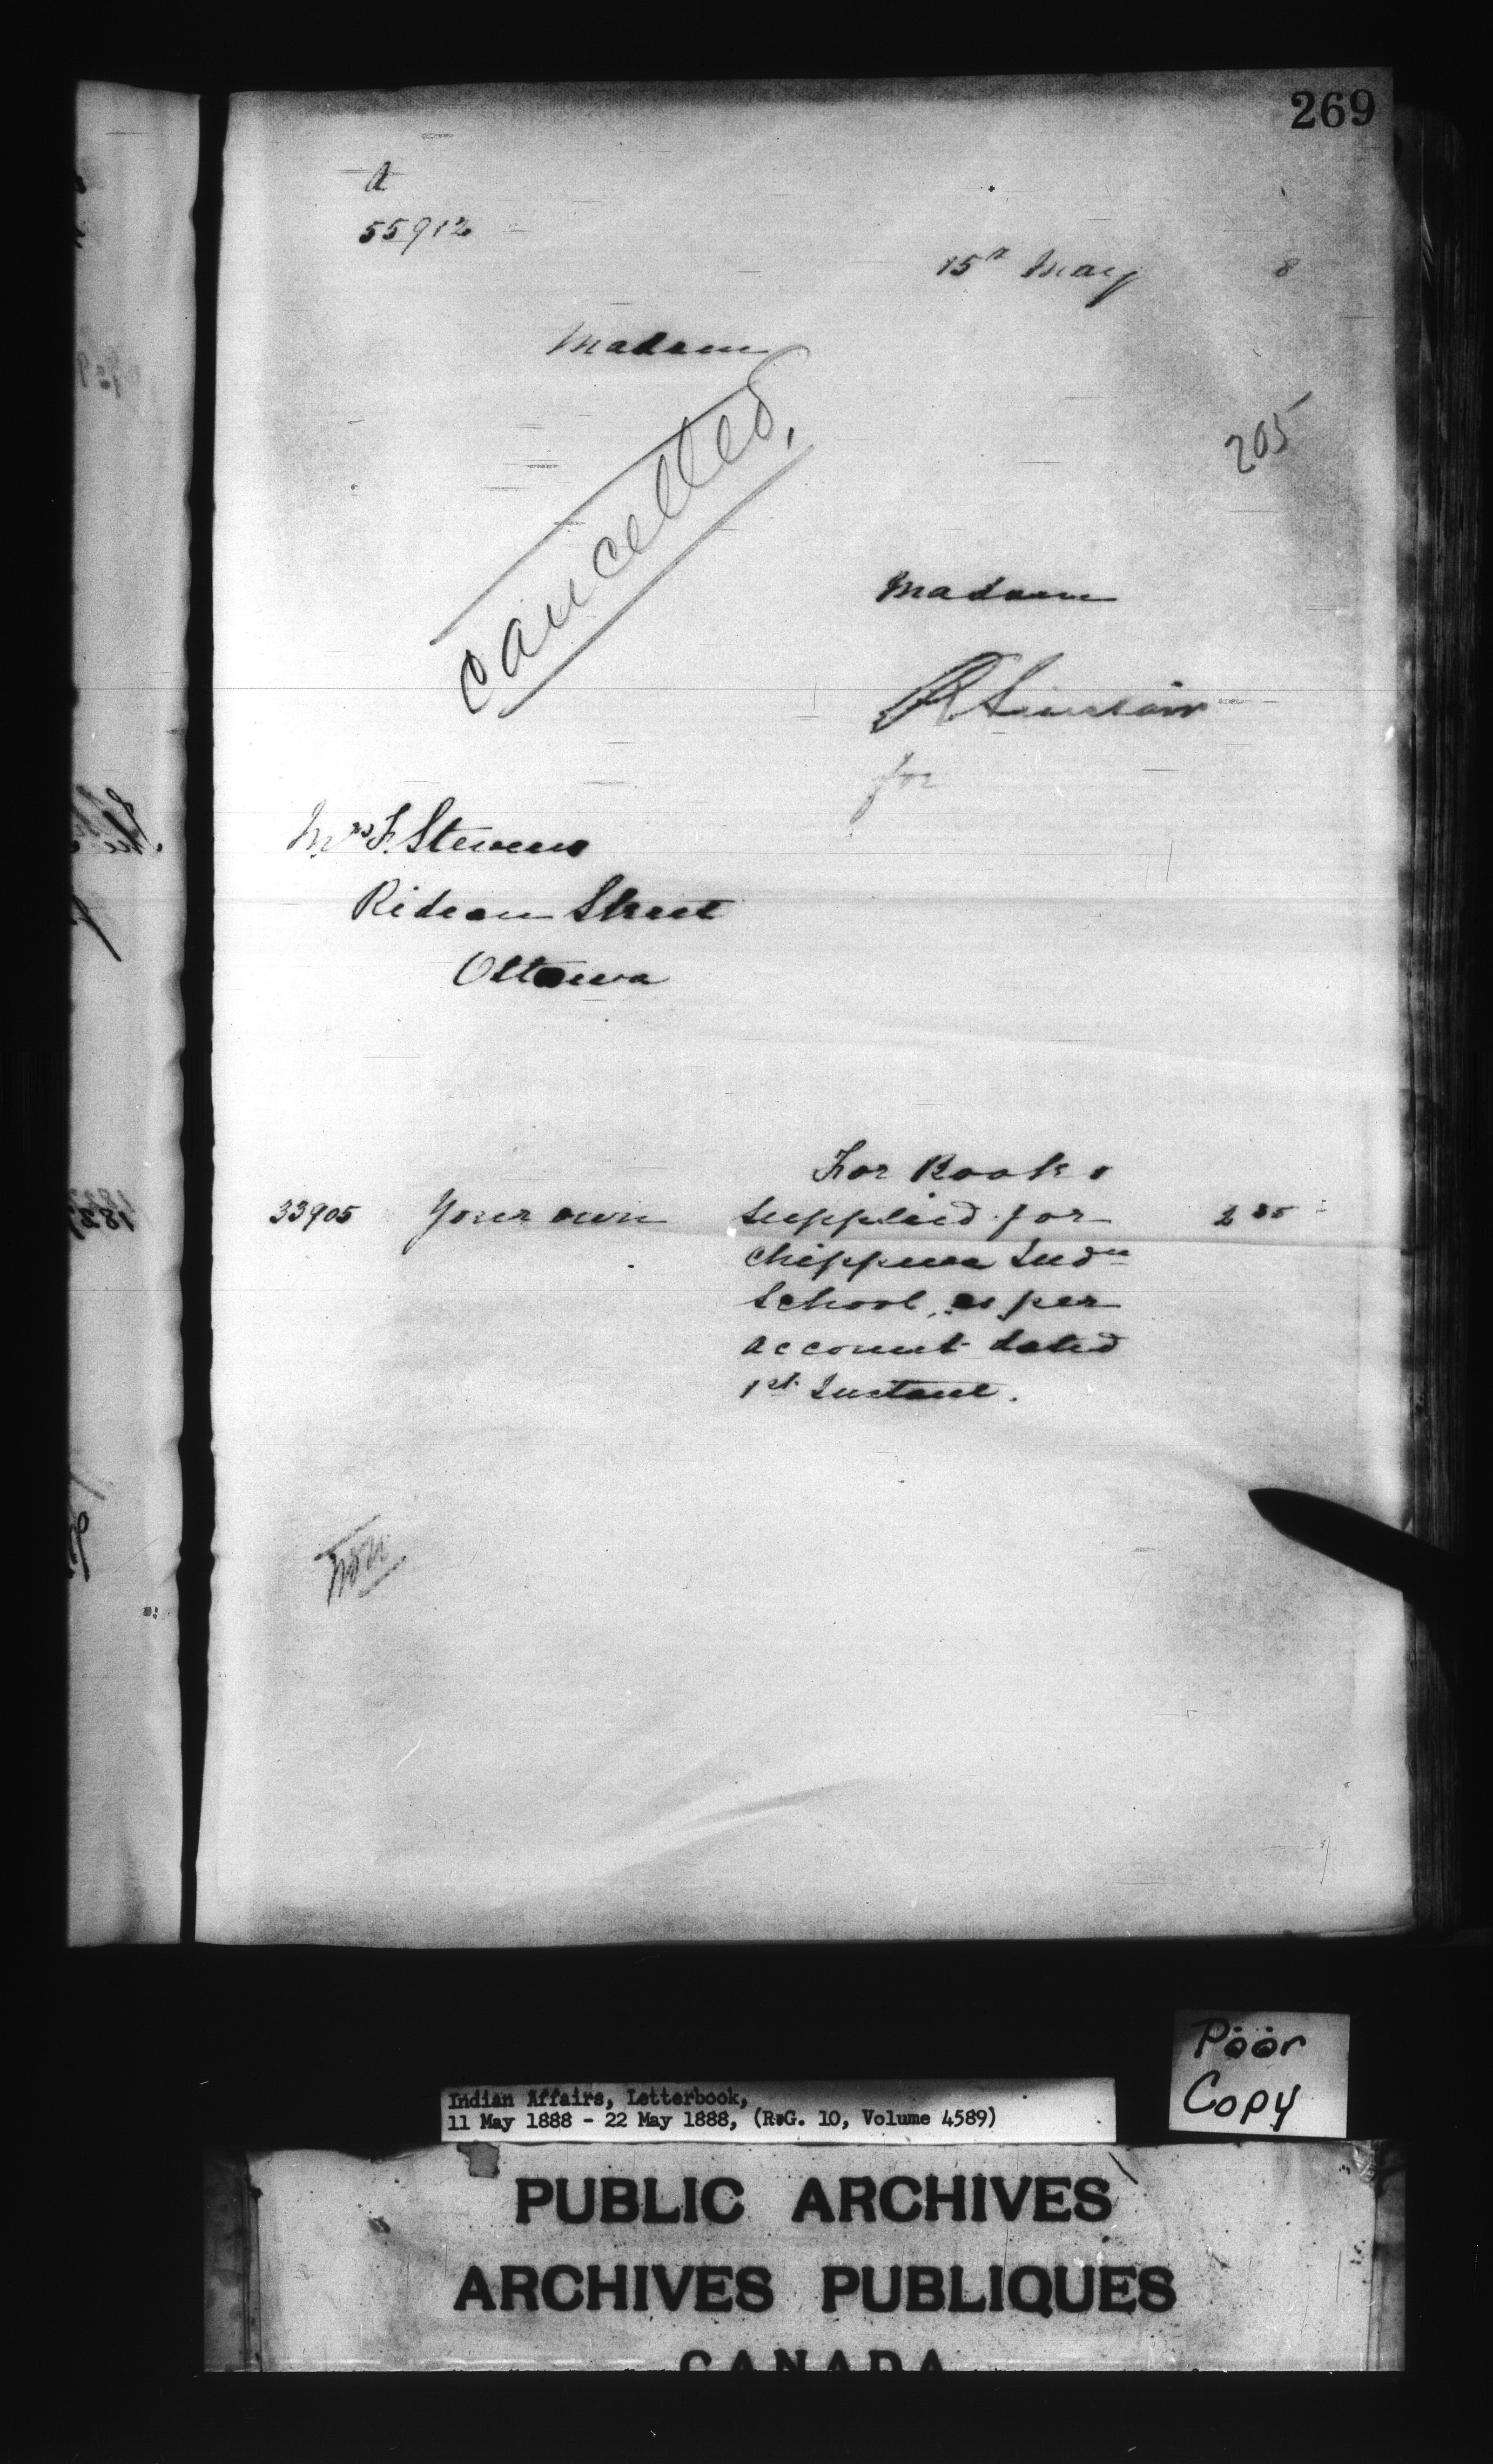 269
A
55912
15th May 8
Madam
cancelled.
205
Madam
R Sinclair
for
Mrs F. Stevens
Rideau Street
Ottawa
For Books
33905 Your own supplied for
Chippewa Indn
School, as per
account dated
1st Instant.
Poor
Copy
Indian Affairs, Letterbook,
11 May 1888 - 22 May 1888, (R.G. 10, Volume 4589)
PUBLIC ARCHIVES
ARCHIVES PUBLIQUES
CANADA